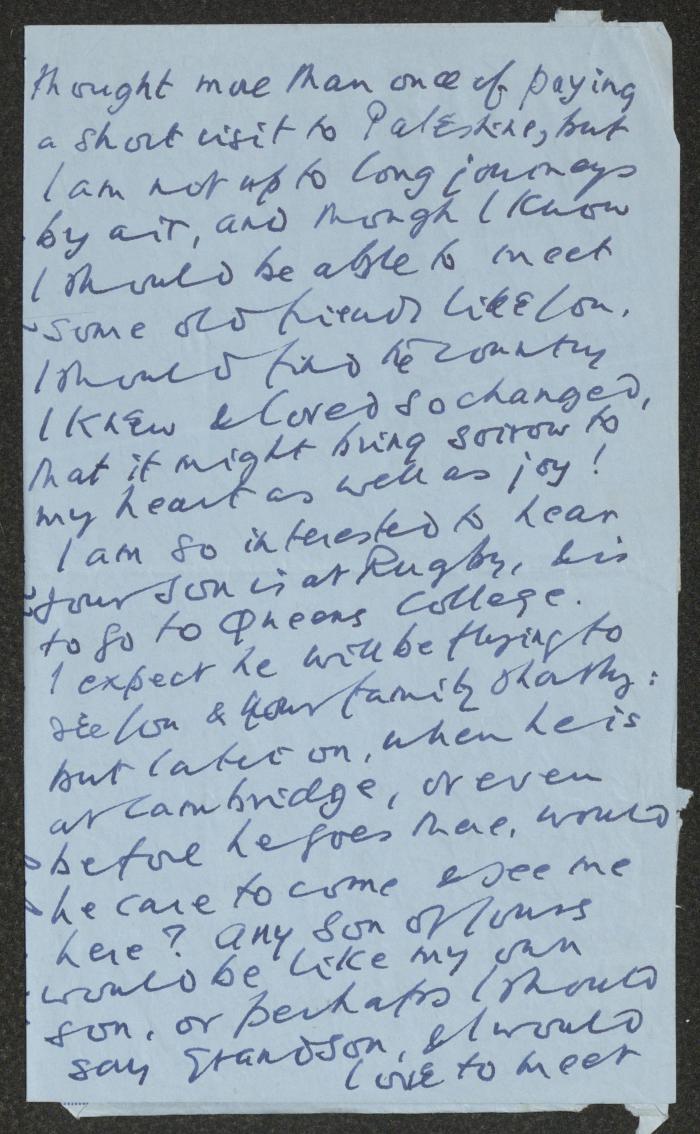 thought more than once of paying
a short visit to Palestine, but
I am not up to long journeys
by air, and though I know
I should be able to meet
some old friends like you,
I should find the country
I knew & loved so changed,
that it might bring sorrow to
my heart as well as joy!
I am so interested to hear
your son is at Rugby, & is
to go to Queens College.
I expect he will be flying to
see you & your family shortly:
but later on, when he is
at Cambridge, or even
before he goes there, would
he care to come & see me
here? Any son of yours
would be like my own
son, or perhaps I should
say grandson, & I would
love to meet